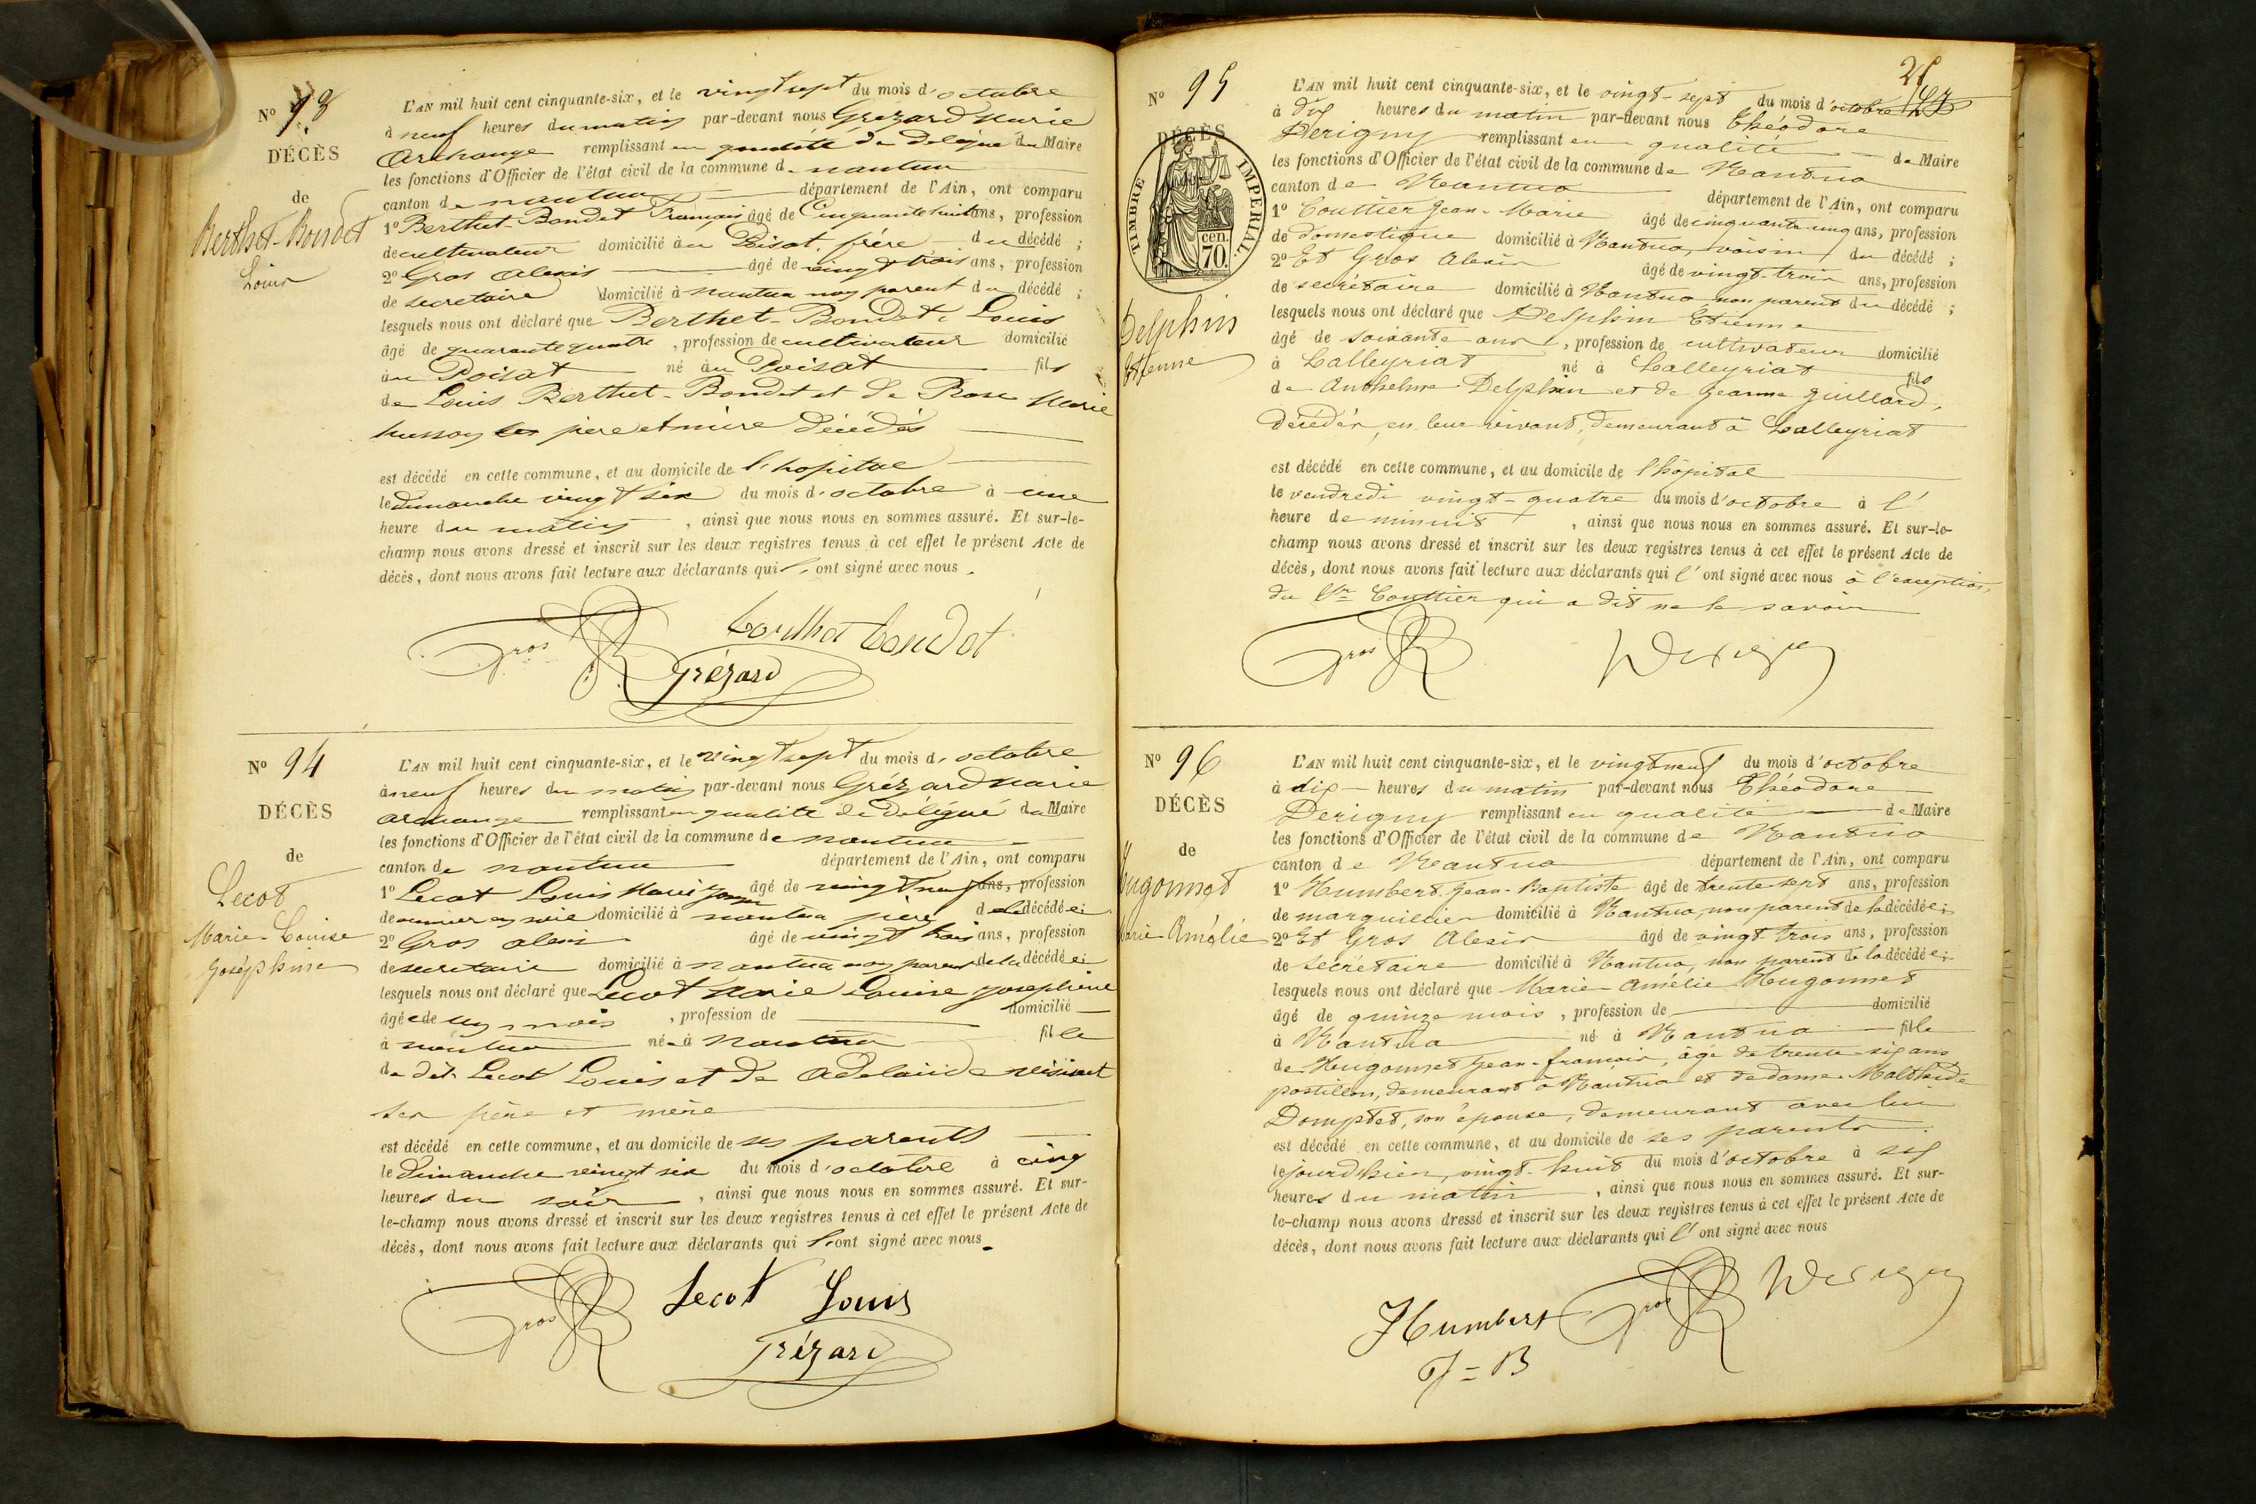 N° 93
DÉCÈS
de
Berthet-Bondet
Louis
L'AN mil huit cent cinquante-six, et le vingt sept du mois d'octobre
à neuf heures du matin par-devant nous Grézard Marie
Archange remplissant en qualité de Délégué du Maire
les fonctions d'Officier de l'état civil de la commune de nantua
canton de nantua département de l'Ain, ont comparu
1° Berthet-Bondet François âgé de Cinquante huit ans, profession
de cultivateur domicilié au Poisat, frère du décédé ;
2° Gros Alexis âgé de vingt trois ans, profession
de secretaire domicilié à nantua non parent du décédé ;
lesquels nous ont déclaré que Berthet-Bondet Louis
âgé de quarante quatre , profession de cultivateur domicilié
au Poisat né au Poisat fils
de Louis Berthet-Bondet et de Rose Marie
père et mère décédés
est décédé en cette commune, et au domicile de l'hopital
le dimanche vingt six du mois d'octobre à une
heure du matin , ainsi que nous nous en sommes assuré. Et sur-le-
champ nous avons dressé et inscrit sur les deux registres tenus à cet effet le présent Acte de
décès, dont nous avons fait lecture aux déclarants qui l'ont signé avec nous.
Gros
Grézard
N° 94
DÉCÈS
de
Lecot
Marie-Louise
Joséphine
L'AN mil huit cent cinquante-six, et le vingt sept du mois d'octobre
à neuf heures du matin par-devant nous Grézard Marie
archange remplissant en qualité de Délégué du Maire
les fonctions d'Officier de l'état civil de la commune de nantua
canton de nantua département de l'Ain, ont comparu
1° Lecot Louis Marie âgé de vingt neuf ans, profession
de ouvrier en soie domicilié à nantua père de la décédée ;
2° Gros alexis âgé de vingt trois ans, profession
de secretaire domicilié à nantua non parent de la décédée ;
lesquels nous ont déclaré que Lecot Marie Louise Josephine
âgée de un mois , profession de domicilié
à nantua née à nantua fille
de dit Lecot Louis et de Adelaide
ses père et mère
est décédé en cette commune, et au domicile de ses parents
le Dimanche vingt six du mois d'octobre à cinq
heures du soir , ainsi que nous nous en sommes assuré. Et sur-
le-champ nous avons dressé et inscrit sur les deux registres tenus à cet effet le présent Acte de
décès, dont nous avons fait lecture aux déclarants qui l'ont signé avec nous.
Gros
Lecot Louis
Grézard
N° 95
DÉCÈS
TIMBRE IMPERIAL.
70 cen.
Delphin
Etienne
L'AN mil huit cent cinquante-six, et le vingt-sept du mois d'octobre
à dix heures du matin par-devant nous Théodore
Derigny remplissant en qualité de Maire
les fonctions d'Officier de l'état civil de la commune de Nantua
canton de Nantua département de l'Ain, ont comparu
1° Couttier Jean-Marie âgé de cinquante-cinq ans, profession
de domestique domicilié à Nantua, voisin du décédé ;
2° Et Gros Alexis âgé de vingt-trois ans, profession
de secrétaire domicilié à Nantua non parent du décédé ;
lesquels nous ont déclaré que Delphin Etienne
âgé de soixante ans , profession de cultivateur domicilié
à Lalleyriat né à Lalleyriat fils
de Anthelme Delphin et de Jeanne Guillard,
Décédés, en leur vivant, demeurant à Lalleyriat
est décédé en cette commune, et au domicile de l'hôpital
le vendredi vingt-quatre du mois d'octobre à l'
heure de minuit , ainsi que nous nous en sommes assuré. Et sur-le-
champ nous avons dressé et inscrit sur les deux registres tenus à cet effet le présent Acte de
décès, dont nous avons fait lecture aux déclarants qui l'ont signé avec nous à l'exception
du Sr Couttier qui a dit ne le savoir
Gros
Derigny
N° 96
DÉCÈS
de
Hugonnet
Marie-Amélie
L'AN mil huit cent cinquante-six, et le vingt neuf du mois d'octobre
à dix heures du matin par-devant nous Théodore
Derigny remplissant en qualité de Maire
les fonctions d'Officier de l'état civil de la commune de Nantua
canton de Nantua département de l'Ain, ont comparu
1° Humbert Jean-Baptiste âgé de trente-sept ans, profession
de marguillier domicilié à Nantua, non parent de la décédée ;
2° Et Gros Alexis âgé de vingt-trois ans, profession
de secrétaire domicilié à Nantua, non parent de la décédée ;
lesquels nous ont déclaré que Marie-Amélie Hugonnet
âgé de quinze mois , profession de domicilié
à Nantua né à Nantua fille
de Hugonnet Jean-françois, âgé de trente-six ans
postillon, demeurant à Nantua et de dame Malthide
Domptet, son épouse, demeurant avec lui
est décédé en cette commune, et au domicile de ses parents
le jourd'hier, vingt-huit du mois d'octobre à six
heures du matin , ainsi que nous nous en sommes assuré. Et sur-
le-champ nous avons dressé et inscrit sur les deux registres tenus à cet effet le présent Acte de
décès, dont nous avons fait lecture aux déclarants qui l'ont signé avec nous
Humbert
J=B
Gros
Derigny